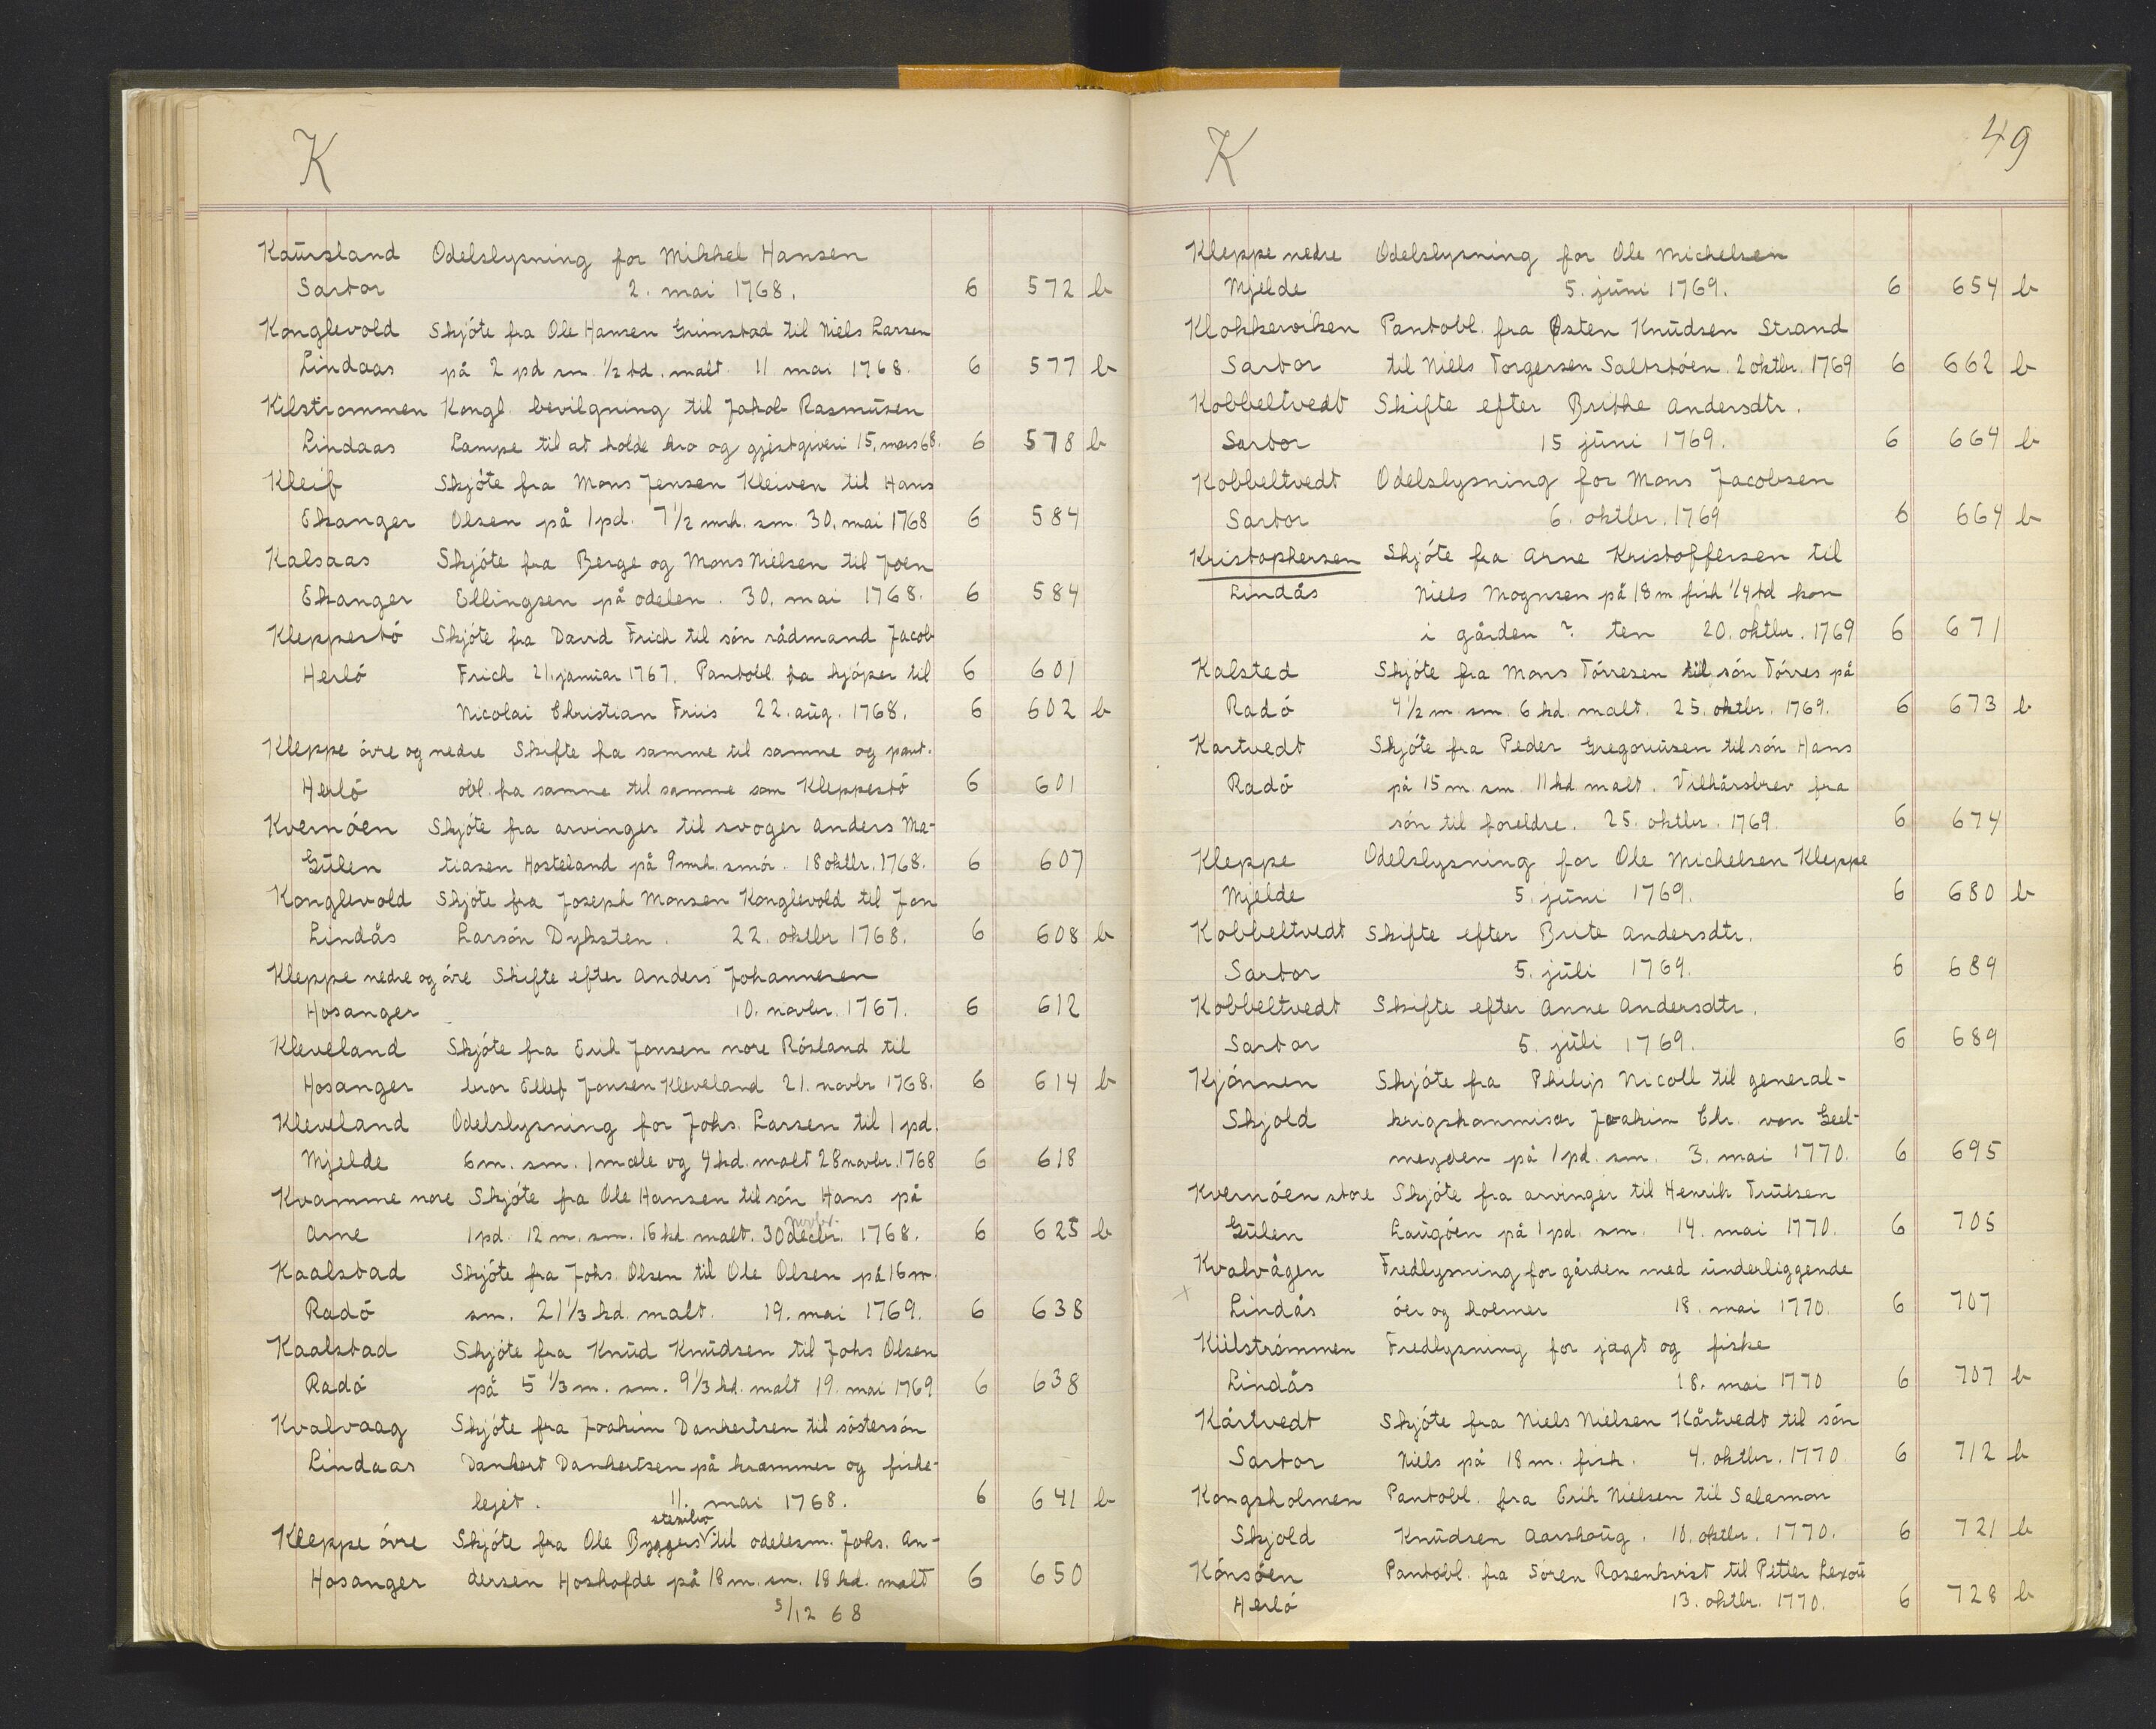 K
Kaursland Odelslysning for Mikkel Hansen
Sartor 2. mai 1768. 6 572 b
Konglevold Skjóte fra Ole Hansen Grimstad til Niels Larsen
Lindaas på 2 pd sm ½ td. malt. 11 mai 1768. 6 577 b
Kilstrommen Kongl. bevilgning til Jakob Rasmusen
Lindaas Lampe til at holde kro og gjestgiveri 15. mars 68. 6 578 b
Kleif Skjóte fra Mons Jensen Kleiven til Hans
Ekanger Olsen på 1 pd. 7½ mrk. sm. 30. mai 1768 6 584
Kalsaas Skjóte fra Berge og Mons Nielsen til Joen
Ekanger Ellingsen på odelen. 30. mai 1768. 6 584
Kleppestó Skjóte fra David Frich til són rådmand Jacob
Herló Frich 21. januar 1767. Pantobl. fra kjóper til 6 601
Nicolai Christian Friis 22. aug. 1768. 6 602 b
Kleppe óvre og nedre Skifte fra samme til samme og pant.
Herló obl. fra samme til samme som Kleppestó 6 601
Kvernóen Skjóte fra arvinger til svoger Anders Ma-
Gulen tiasen Hosteland på 9 mrk. smór. 18 oktbr. 1768. 6 607
Konglevold Skjóte fra Joseph Monsen Konglevold til Jon
Lindås Larsón Dyksten. 22. oktbr 1768. 6 608 b
Kleppe nedre og óvre Skifte efter Anders Johannesen
Hosanger 10. novbr. 1767. 6 612
Kleveland Skjóte fra Erik Jonsen nore Rósland til
Hosanger bror Ellef Jonsen Kleveland 21. novbr 1768. 6 614 b
Kleveland Odelslysning for Johs. Larsen til 1 pd.
Mjelde 6 m. sm. 1 mæle og 4 hd. malt 28 novbr. 1768 6 618
Kvamme nore Skjóte fra Ole Hansen til són Hans på
novbr.
Arne 1 pd. 12 m. sm. 16 hd. malt. 30 decbr. 1768. 6 625 b
Kaalstad Skjóte fra Johs. Olsen til Ole Olsen på 16 m.
Radó sm. 21⅓ hd. malt. 19. mai 1769. 6 638
Kaalstad Skjóte fra Knud Knudsen til Johs Olsen
Radó på 5⅓ m. sm. 9⅓ hd. malt 19. mai 1769 6 638
Kvalvaag Skjóte fra Joakim Dankertsen til sóstersón
Lindaas Dankert Dankertsen på kræmmer og fiske-
lejet. 11. mai 1768. 6 641 b
Kleppe óvre Skjóte fra Ole Byggers til odelsm. Johs. An-
Hosanger dersen Hoshofde på 18 m. sm. 18 hd. malt 6 650
5/12 68
K 49
Kleppe nedre Odelslysning for Ole Michelsen
Mjelde 5. juni 1769. 6 654 b
Klokkerviken Pantobl. fra Østen Knudsen Strand
Sartor til Niels Torgersen Saltstóen. 2 oktbr. 1769 6 662 b
Kobbeltvedt Skifte efter Brithe Andersdtr.
Sartor 15 juni 1769. 6 664 b
Kobbeltvedt Odelslysning for Mons Jacobsen
Sartor 6. oktbr. 1769 6 664 b
Kristophersen Skjóte fra Arne Kristoffersen til
Lindås Niels Mognsen på 18 m. fisk ¼ td korn
i gården ? ten 20. oktbr. 1769 6 671
Kalsted Skjóte fra Mons Tórresen til són Tórres på
Radó 4½ m sm. 6 hd. malt. 25. oktbr. 1769. 6 673 b
Kartvedt Skjóte fra Peder Gregoriusen til són Hans
Radó på 15 m. sm. 11 hd malt. Vilkårsbrev fra
són til foreldre. 25. oktbr. 1769. 6 674
Kleppe Odelslysning for Ole Michelsen Kleppe
Mjelde 5. juni 1769. 6 680 b
Kobbeltvedt Skifte efter Brite Andersdtr.
Sartor 5. juli 1769. 6 689
Kobbeltvedt Skifte efter Anne Andersdtr.
Sartor 5. juli 1769. 6 689
Kjónnen Skjóte fra Philip Nicoll til general-
Skjold krigskommisær Joakim Chr. von Geel-
meyden på 1 pd. sm. 3. mai 1770. 6 695
Kvernóen store Skjóte fra arvinger til Henrik Trulsen
Gulen Laugóen på 1 pd. sm. 14. mai 1770. 6 705
Kvalvågen Fredlysning for gården med underliggende
x Lindås óer og holmer 18. mai 1770. 6 707
Kielstrómmen Fredlysning for jagt og fiske
Lindås 18. mai 1770 6 707 b
Kårtvedt Skjóte fra Niels Nielsen Kårtvedt til són
Sartor Niels på 18 m. fisk. 4. oktbr. 1770 6 712 b
Kongsholmen Pantobl. fra Erik Nielsen til Salamon
Skjold Knudsen Aarshaug. 10. oktbr. 1770. 6 721 b
Kónsóen Pantobl. fra Sóren Rosenkvist til Petter
Herló 13. oktbr. 1770. 6 728 b